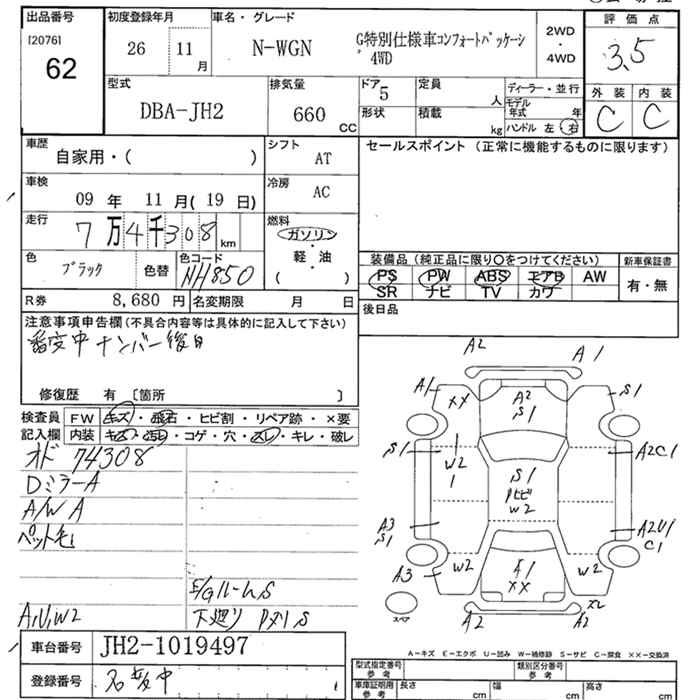 出品番号
[2076]
62
初度登録年月
26 11月
車名・グレード
N-WGN G特別仕様車コンフォートパッケージ 4WD
2WD・4WD
評価点
3.5
外装 内装
C C
型式
DBA-JH2
排気量
660 CC
ドア
5
形状
定員
人
積載
kg
ディーラー・並行
モデル年式 年
ハンドル 左 右
車歴
自家用・( )
シフト
AT
車検
09 年 11 月( 19 日)
冷房
AC
走行
7万4千308 km
燃料
ガソリン・軽油・( )
色
ブラック
色替
色コード
NH850
R券 8,680 円 名変期限 月 日
セールスポイント (正常に機能するものに限ります)
装備品(純正品に限り○をつけてください)
新車保証書
PS PW ABS エアB AW
SR ナビ TV カワ
有・無
後日品
注意事項申告欄(不具合内容等は具体的に記入して下さい)
ナンバー後日
修復歴 有 〔箇所 〕
検査員記入欄
FW キズ・飛石・ヒビ割・リペア跡・×要
内装 キズ・汚れ・コゲ・穴・スレ・キレ・破レ
オド 74308
DミラーA
A/W A
ペット毛
E/Gルーム S
A1,U1,W2
下廻り Pメリ S
A2
A1
A1
XX
A2
S1
S1
S1
W2
1
S1
Pヒビ
W2
A2C1
A3
S1
A2U1
C1
A3
W2
A1
XX
W2
X2
A2
A2
スペア
A-キズ E-エクボ U-凹み W-補修跡 S-サビ C-腐食 ××-交換済
車台番号 JH2-1019497
登録番号
型式指定番号
参考
類別区分番号
参考
車庫証明用
参考
長さ cm
幅 cm
高さ cm